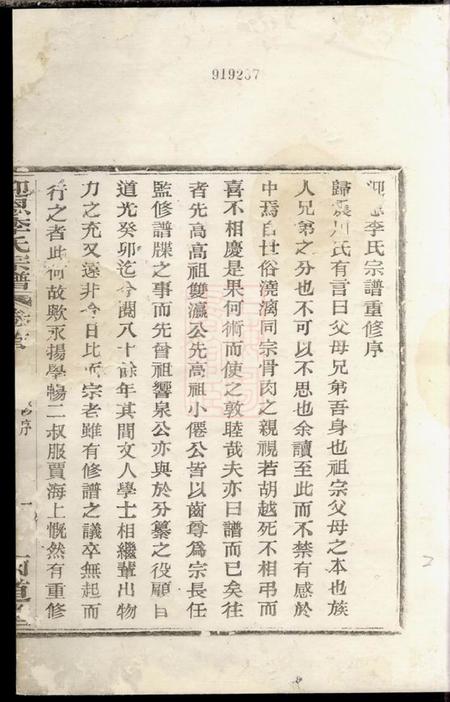 919267
迎恩李氏宗譜重修序
歸震川氏有言曰父母兄弟吾身也祖宗父母之本也族
人兄弟之分也不可以不思也余讀至此而不禁有感於
中焉自世俗澆漓同宗骨肉之親視若胡越死不相弔而
喜不相慶是果何術而使之敦睦哉夫亦曰譜而已矣往
者先高高祖雙瀛公先高祖小僊公皆以齒尊爲宗長任
監修譜牒之事而先曾祖響泉公亦與於分纂之役顧自
道光癸卯迄今閱八十餘年其間文人學士相繼輩出物
力之充又遠非今日比而宗老雖有修譜之議卒無起而
行之者此何故歟永揚學暢二叔服賈海上慨然有重修
迎恩李氏宗譜
卷首
序
一